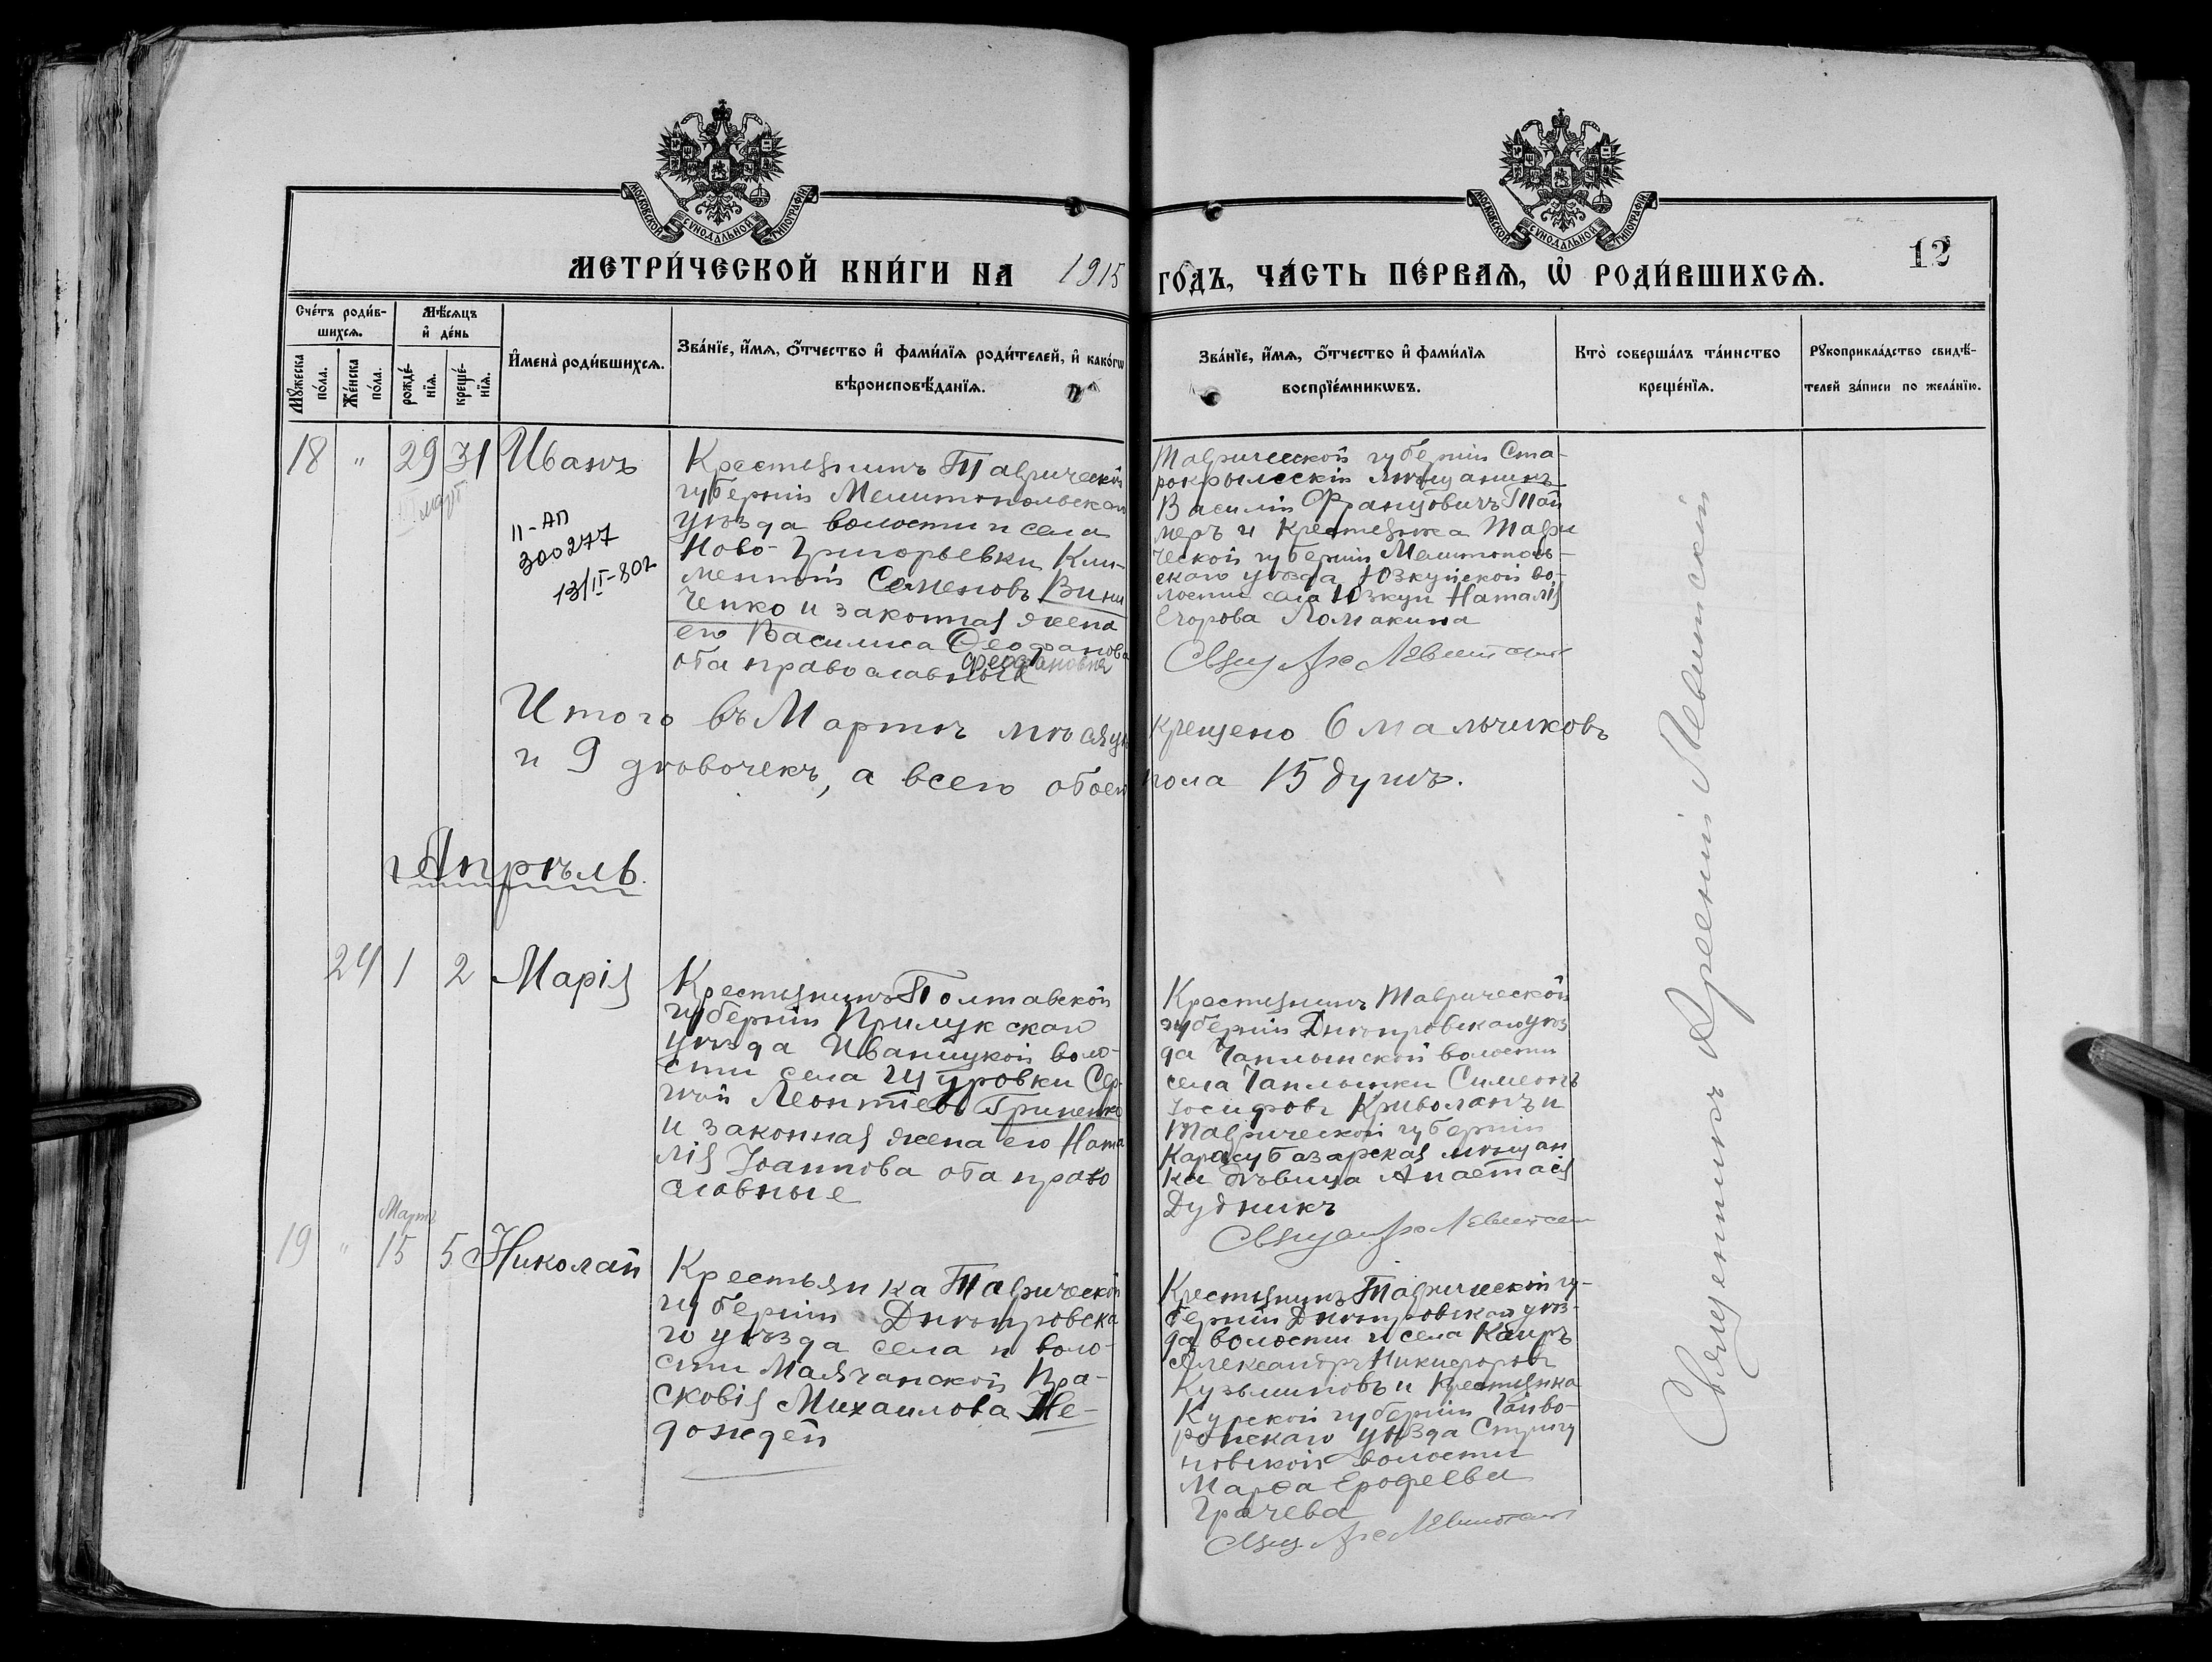 МОСКОВСКОЙ СѴНОДАЛЬНОЙ ТИПОГРАФІИ
МОСКОВСКОЙ СѴНОДАЛЬНОЙ ТИПОГРАФІИ
МЕТРИ́ЧЕСКОЙ КНИ́ГИ НА 1915 ГО́ДЪ, ЧА́СТЬ ПЕ́РВАѦ, Ѡ҆ РОДИ́ВШИХСѦ.
12
Сче́тъ роди́в-
шихсѧ.
Мꙋ́жеска
по́ла.
Же́нска
по́ла.
Мѣ́сѧцъ
и҆ де́нь
рожде́-
нїѧ.
креще́-
нїѧ.
И҆мена̀ роди́вшихсѧ.
Зва́нїе, и҆́мѧ, ѻ҆́тчество и҆ фами́лїѧ роди́телей, и҆ како́гѡ
вѣроисповѣ́данїѧ.
Зва́нїе, и҆́мѧ, ѻ҆́тчество и҆ фами́лїѧ
воспрїе́мникѡвъ.
Кто̀ соверша́лъ та́инство
креще́нїѧ.
Рꙋкоприкла́дство свидѣ́-
телей за́писи по жела́нїю.
18 " 29 31 Иванъ
март.
II-АП
300277
13/II-80г
Крестьянинъ Таврической
губерніи Мелитопольскаго
уѣзда волости и села
Ново-Григорьевки Кли-
ментій Семеновъ Вини
ченко и законная жена
его Василиса Ѳеофанова
Феофановна
оба православные
Таврической губерніи Ста-
рокрымскій мѣщанинъ
Василій Францовичъ Тай
меръ и Крестьянка Таври
ческой губерніи Мелитополь-
скаго уѣзда Юзкуйской во-
лости села Юзкуи Наталія
Егорова Ломакина
Свящ Арс Левитскій
Итого въ Мартѣ мѣсяцѣ крещено 6 мальчиковъ
и 9 дѣвочекъ, а всего обоего пола 15 душъ.
Апрѣль.
24 1 2 Марія
Крестьянинъ Полтавской
губерніи Прилукскаго
уѣзда Иваницкой воло-
сти села Щуровки Сер-
гѣй Леонтіевъ Гриценко
и законная жена его Ната
лія Іоаннова оба право
славные
Крестьянинъ Таврической
губерніи Днѣпровскаго уѣз
да Чаплынской волости
села Чаплынки Симеонъ
Іосифовъ Криволапъ и
Таврической губерніи
Карасубазарская мѣщан
ка дѣвица Анастасія
Дудникъ
Священ Арс Левитскій
Мартъ
19 " 15 5 Николай
Крестьянка Таврической
губерніи Днѣпровска
го уѣзда села и воло-
сти Маячанской Пра-
сковія Михаилова Не-
дождей
Крестьянинъ Таврической гу-
берніи Днѣпровскаго уѣз-
да волости и села Каиръ
Александръ Никифоровъ
Кузьминовъ и Крестьянка
Курской губерніи Грайво-
ронскаго уѣзда Стригу
новской волости
Марѳа Ерофеева
Грачева
Свящ Арс Левитскій
Священникъ Арсеній Левитскій